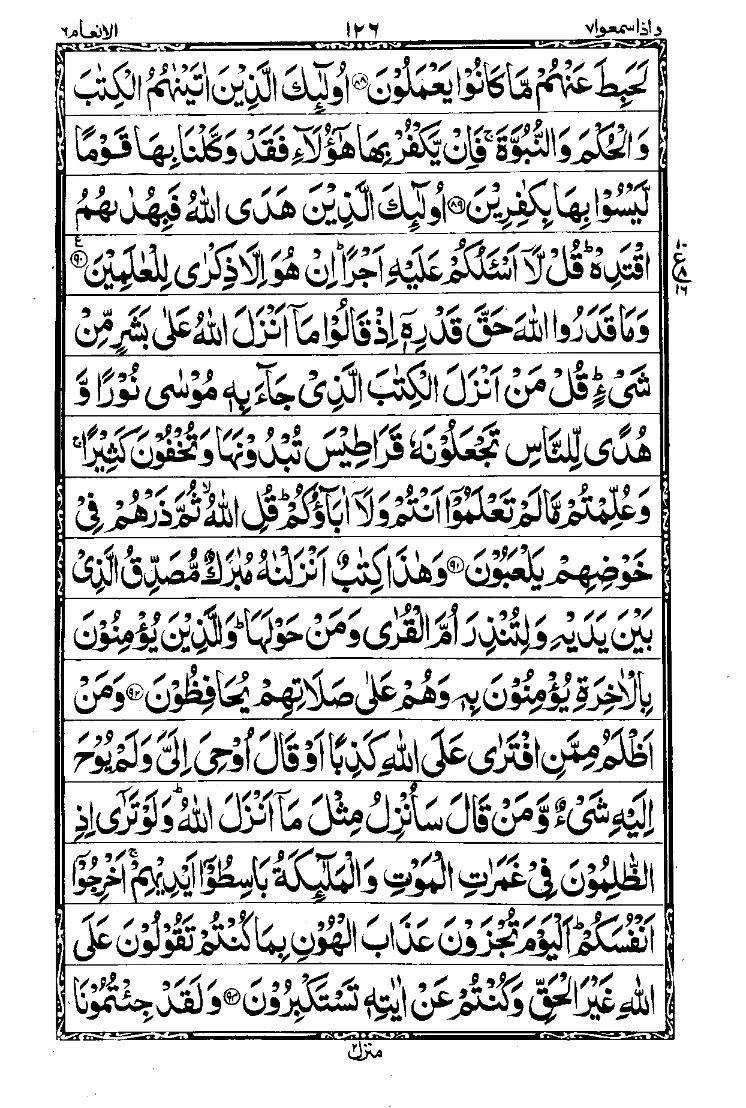 واذاسمعوا۷ ۱۲۶ الانعام۶
لَحَبِطَ عَنْهُمْ مَّا كَانُوْا يَعْمَلُوْنَ ۸۸ اُولٰٓئِكَ الَّذِيْنَ اٰتَيْنٰهُمُ الْكِتٰبَ
وَالْحُكْمَ وَالنُّبُوَّةَ ۚ فَاِنْ يَّكْفُرْ بِهَا هٰٓؤُلَآءِ فَقَدْ وَكَّلْنَا بِهَا قَوْمًا
لَّيْسُوْا بِهَا بِكٰفِرِيْنَ ۸۹ اُولٰٓئِكَ الَّذِيْنَ هَدَى اللّٰهُ فَبِهُدٰىهُمُ
اقْتَدِهْ ؕ قُلْ لَّآ اَسْـَٔلُكُمْ عَلَيْهِ اَجْرًا ؕ اِنْ هُوَ اِلَّا ذِكْرٰى لِلْعٰلَمِيْنَ ۹۰
ع ۱۰ ۸ ۱۶
وَمَا قَدَرُوا اللّٰهَ حَقَّ قَدْرِهٖٓ اِذْ قَالُوْا مَآ اَنْزَلَ اللّٰهُ عَلٰى بَشَرٍ مِّنْ
شَيْءٍ ؕ قُلْ مَنْ اَنْزَلَ الْكِتٰبَ الَّذِيْ جَآءَ بِهٖ مُوْسٰى نُوْرًا وَّ
هُدًى لِّلنَّاسِ تَجْعَلُوْنَهٗ قَرَاطِيْسَ تُبْدُوْنَهَا وَتُخْفُوْنَ كَثِيْرًا ۚ
وَعُلِّمْتُمْ مَّا لَمْ تَعْلَمُوْٓا اَنْتُمْ وَلَآ اٰبَآؤُكُمْ ؕ قُلِ اللّٰهُ ۙ ثُمَّ ذَرْهُمْ فِيْ
خَوْضِهِمْ يَلْعَبُوْنَ ۹۱ وَهٰذَا كِتٰبٌ اَنْزَلْنٰهُ مُبٰرَكٌ مُّصَدِّقُ الَّذِيْ
بَيْنَ يَدَيْهِ وَلِتُنْذِرَ اُمَّ الْقُرٰى وَمَنْ حَوْلَهَا ؕ وَالَّذِيْنَ يُؤْمِنُوْنَ
بِالْاٰخِرَةِ يُؤْمِنُوْنَ بِهٖ وَهُمْ عَلٰى صَلَاتِهِمْ يُحَافِظُوْنَ ۹۲ وَمَنْ
اَظْلَمُ مِمَّنِ افْتَرٰى عَلَى اللّٰهِ كَذِبًا اَوْ قَالَ اُوْحِيَ اِلَيَّ وَلَمْ يُوْحَ
اِلَيْهِ شَيْءٌ وَّمَنْ قَالَ سَاُنْزِلُ مِثْلَ مَآ اَنْزَلَ اللّٰهُ ؕ وَلَوْ تَرٰٓى اِذِ
الظّٰلِمُوْنَ فِيْ غَمَرٰتِ الْمَوْتِ وَالْمَلٰٓئِكَةُ بَاسِطُوْٓا اَيْدِيْهِمْ ۚ اَخْرِجُوْٓا
اَنْفُسَكُمْ ؕ اَلْيَوْمَ تُجْزَوْنَ عَذَابَ الْهُوْنِ بِمَا كُنْتُمْ تَقُوْلُوْنَ عَلَى
اللّٰهِ غَيْرَ الْحَقِّ وَكُنْتُمْ عَنْ اٰيٰتِهٖ تَسْتَكْبِرُوْنَ ۹۳ وَلَقَدْ جِئْتُمُوْنَا
منزل۲